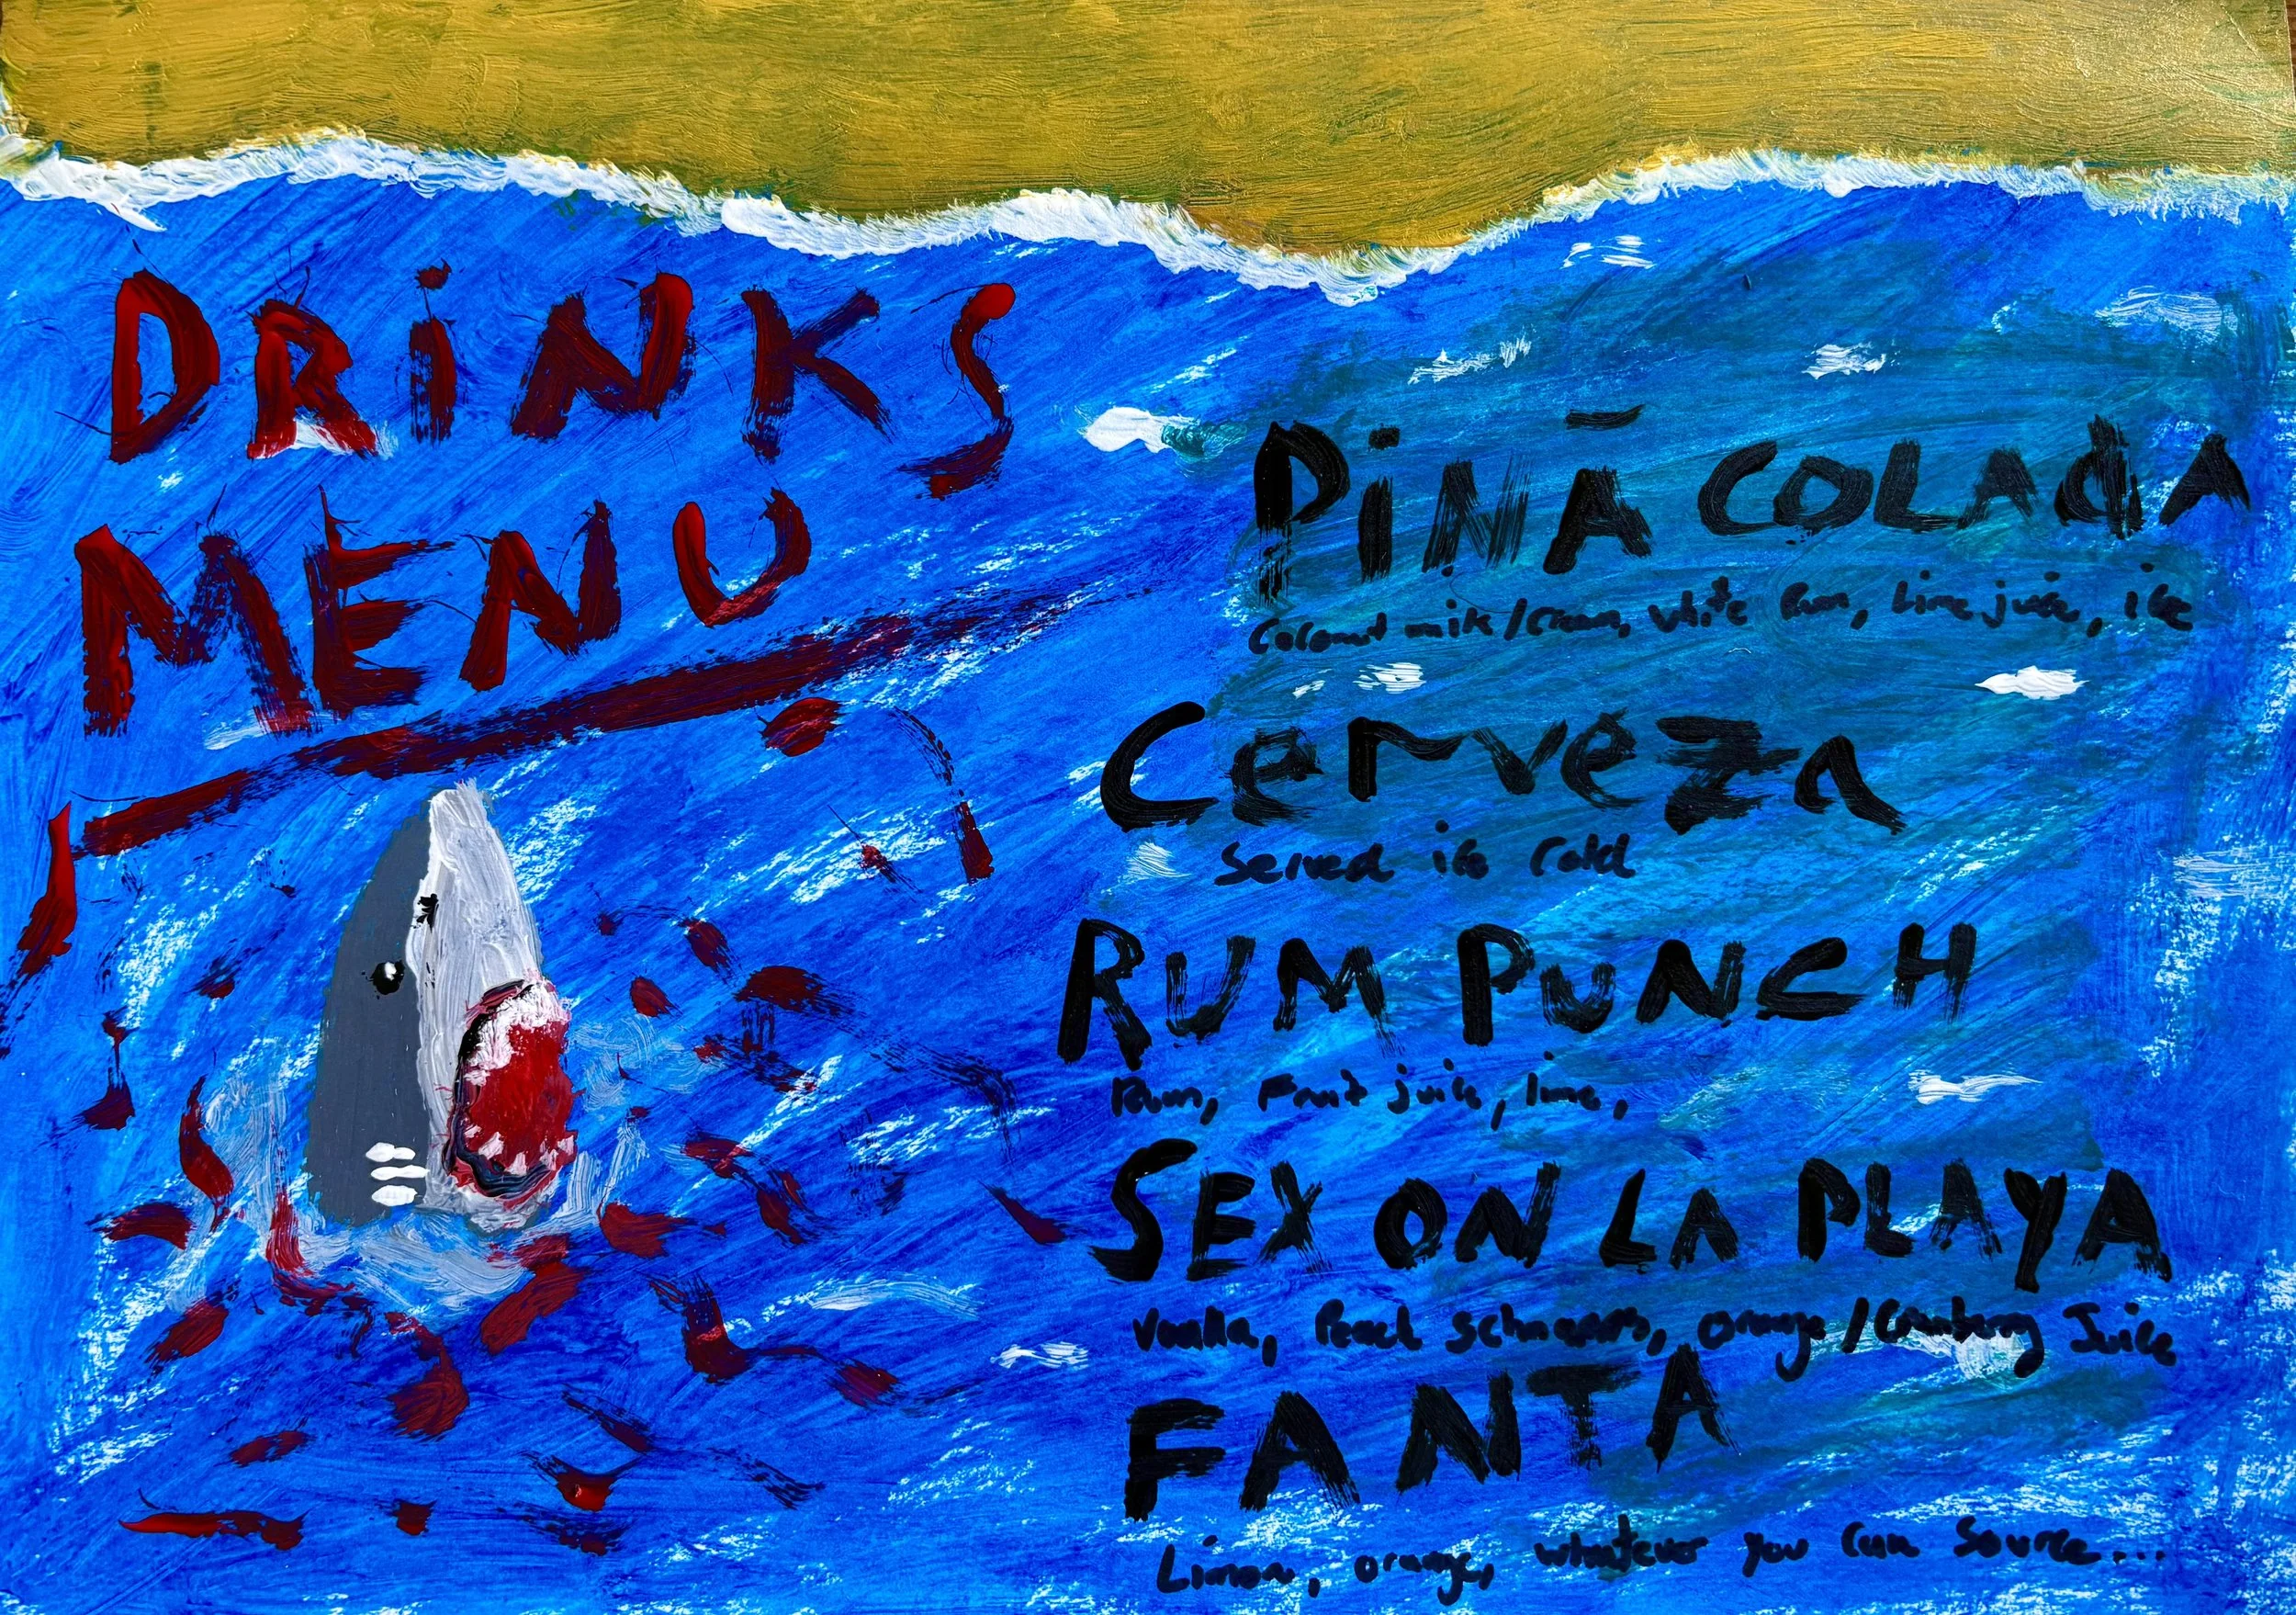 DRiNKS
MENU
PiNĀ COLADA
Coconut milk/cream, white rum, lime juice, ice
Cerveza
Served ice cold
RUM PUNCH
Rum, Fruit juice, lime,
SEX ON LA PLAYA
Vodka, Peach schnapps, orange/Cranberry Juice
FANTA
Limon, orange, whatever you can source...